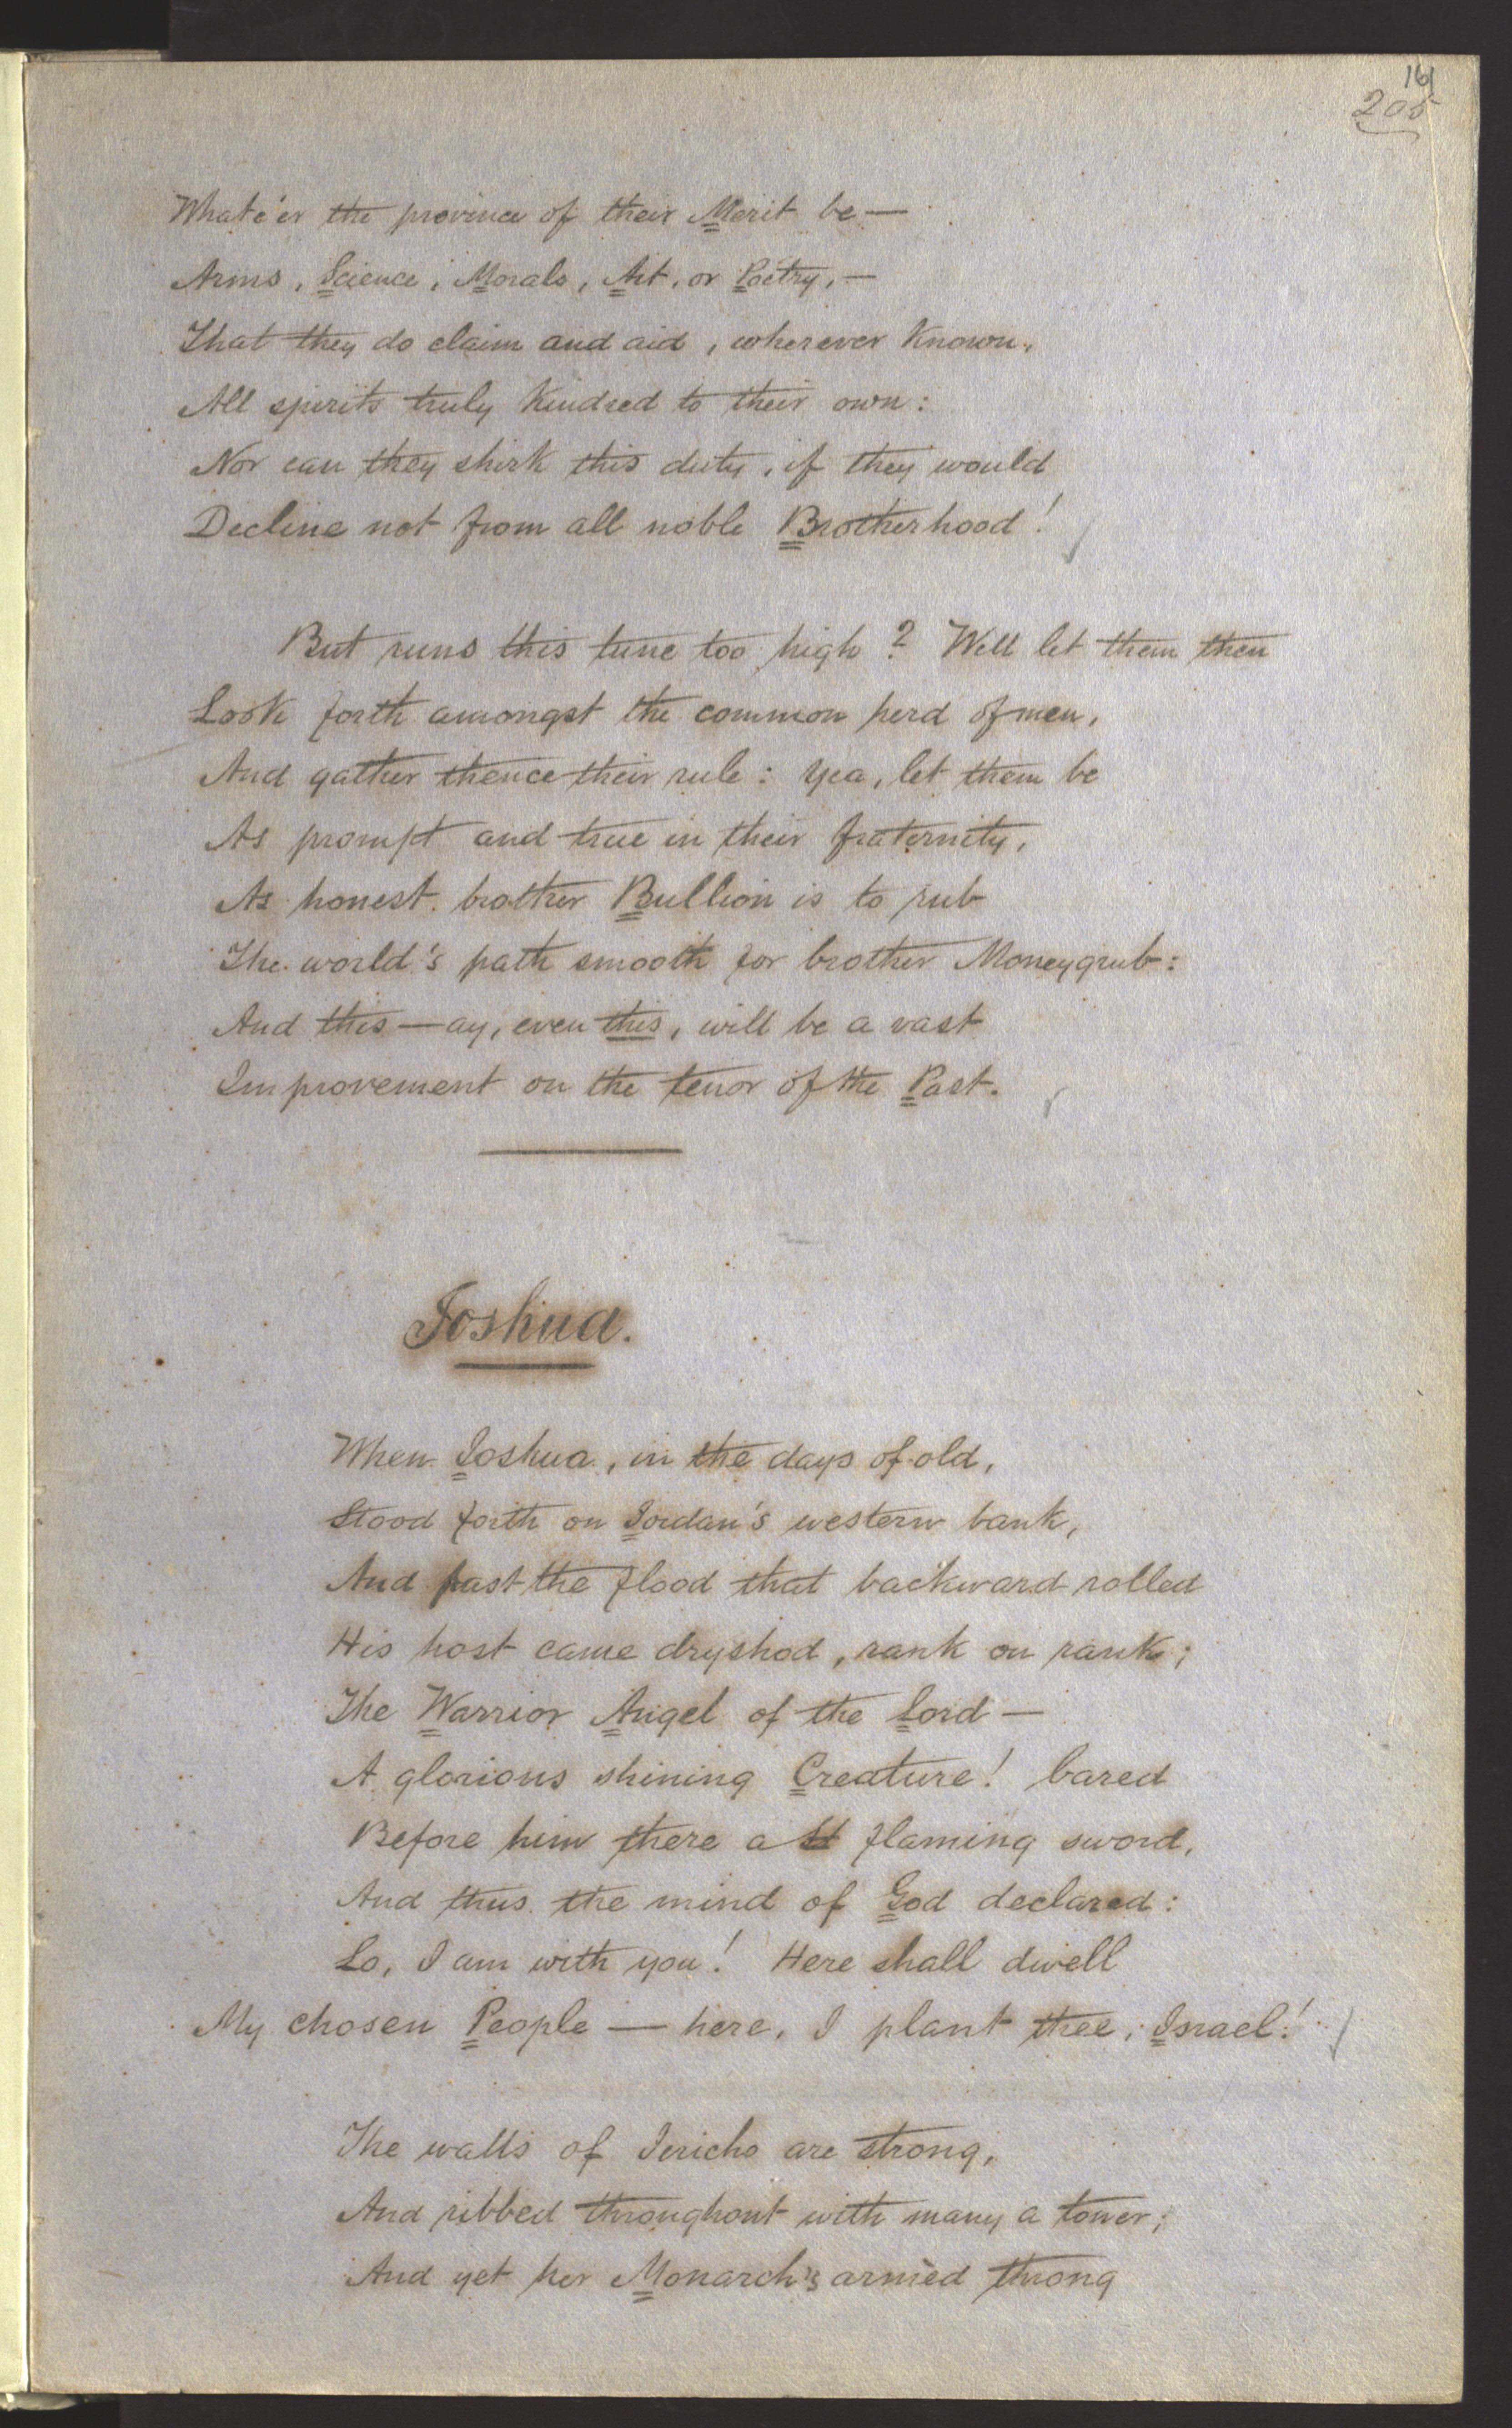 161
205
Whate'er the province of their Merit be —
Arms, Science, Morals, Art, or Poetry, —
That they do claim and aid, wherever known,
All spirits truly kindred to their own:
Nor can they shirk this duty, if they would
Decline not from all noble Brotherhood!
But runs this tune too high? Well let them then
Look forth amongst the common herd of men,
And gather thence their rule: yea, let them be
As prompt and true in their fraternity,
As honest brother Bullion is to rub
The world's path smooth for brother Moneygrub:
And this — ay, even this, will be a vast
Improvement on the tenor of the Past.
Joshua.
When Joshua, in the days of old,
Stood forth on Jordan's western bank,
And past the flood that backward rolled
His host came dryshod, rank on rank;
The Warrior Angel of the Lord —
A glorious shining Creature! bared
Before him there a flaming sword,
And thus the mind of God declared:
Lo, I am with you! Here shall dwell
My chosen People — here, I plant thee, Israel!
The walls of Jericho are strong,
And ribbed throughout with many a tower;
And yet her Monarch's armèd throng